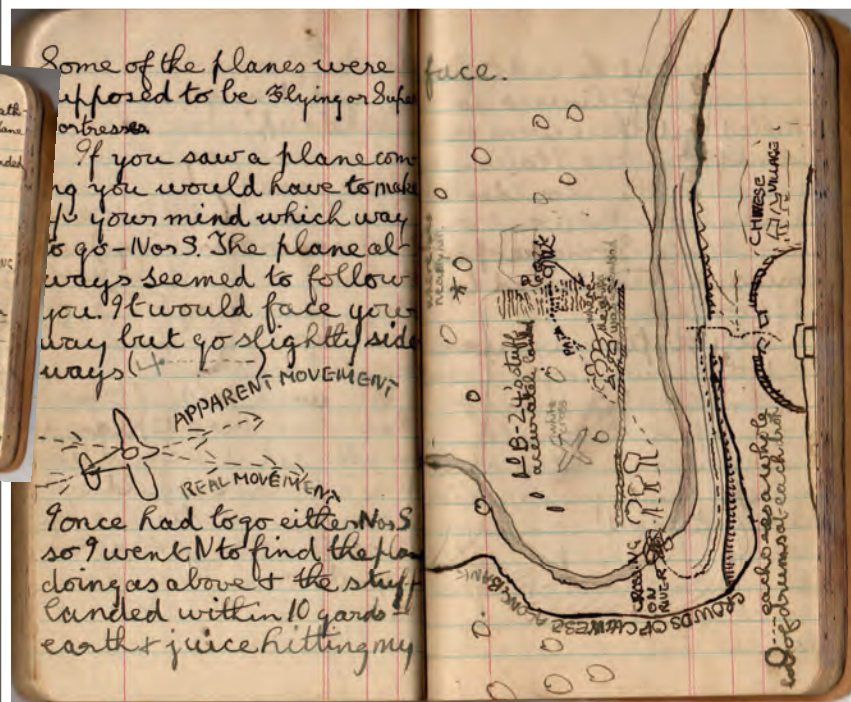 Some of the planes were
upposed to be Flying or Supe
ortresses.
If you saw a plane com
ng you would have to make
up your mind which way
to go - N or S. The plane al-
ways seemed to follow
you. It would face your
way but go slightly side
ways (
APPARENT MOVEMENT
REAL MOVEMENT
I once had to go either N or S
so I went N to find the plan
doing as above & the stuff
landed within 10 yards -
earth & juice hitting my
face.
B-24's stuff
accurately landed
white
cross
PATH
CHINESE
VILLAGE
CROSSING
ON
RIVER
CROWDS OF CHINESE ALONG BANK
O --- each o sees a whole
load of drums at each
ath-
lane
nded
NG